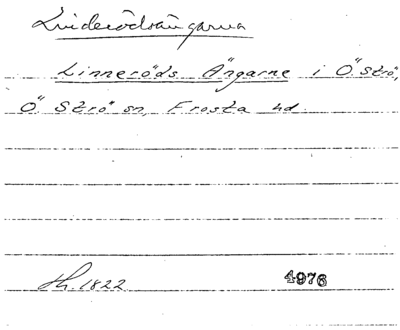 Linderödsängarna
Linneröds Ängarne i Ö. Strö,
Ö. Strö sn, Frosta hd
Sk. 1822 4976